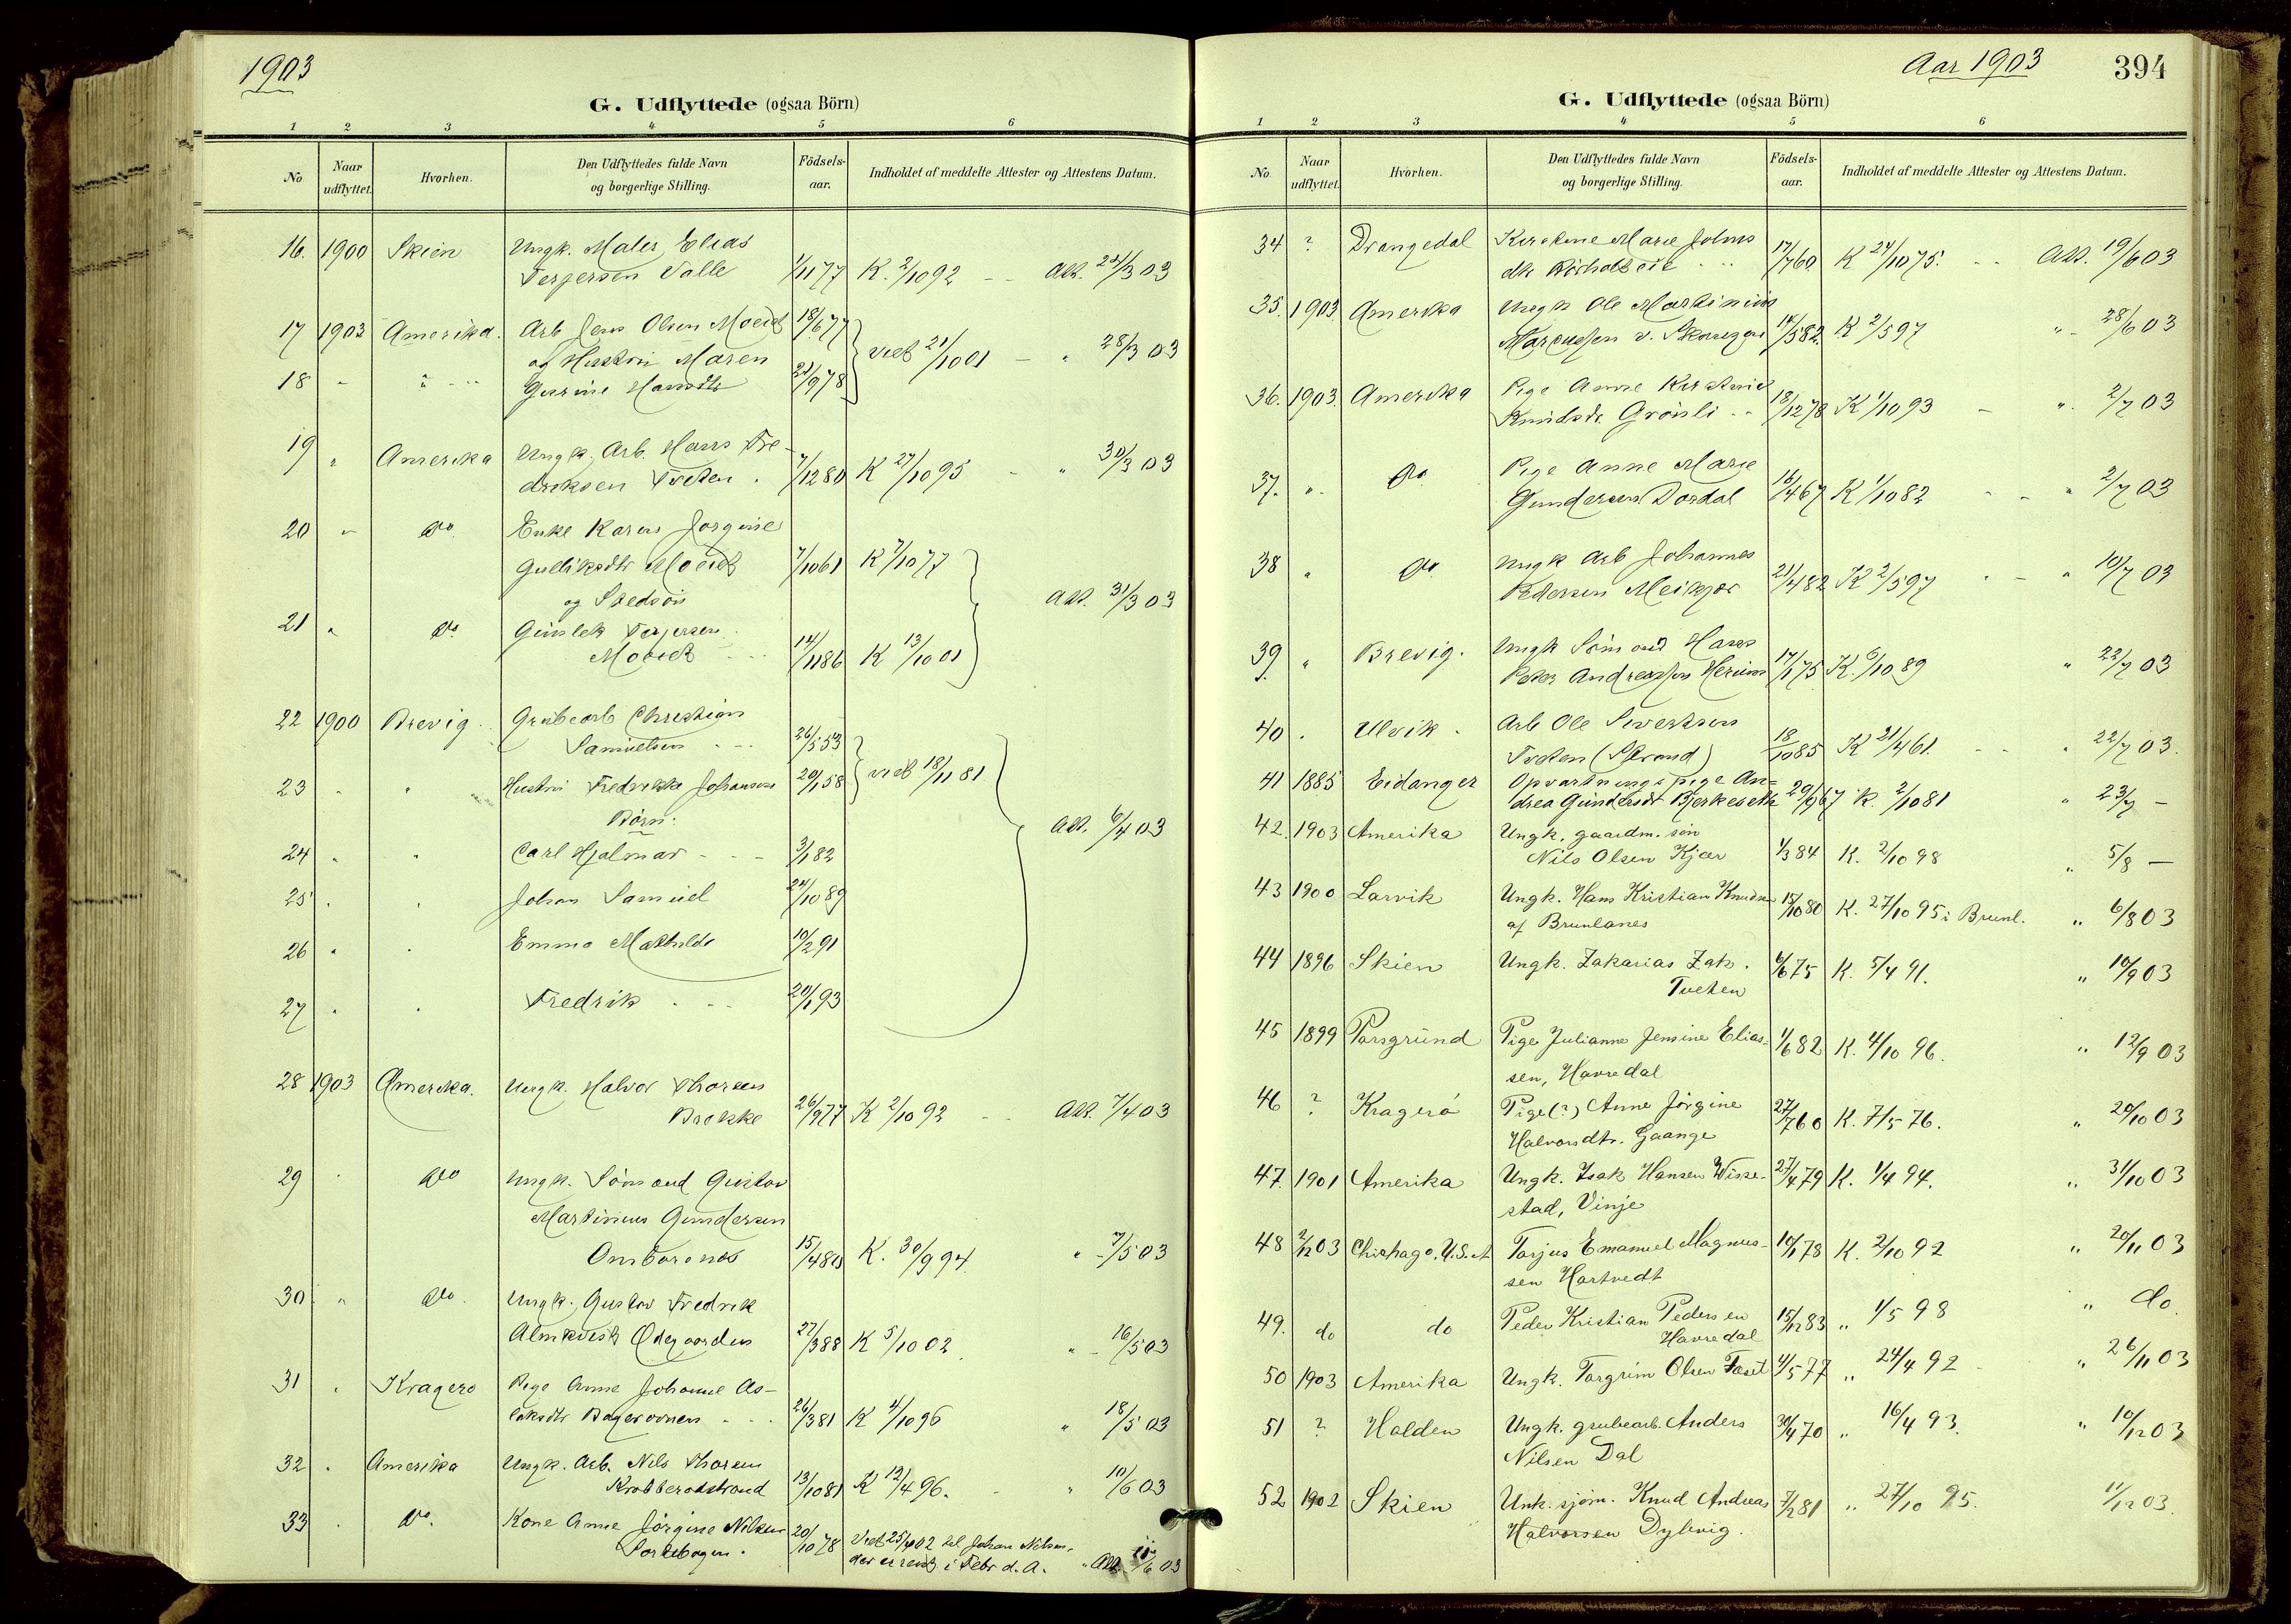 1903
G. Udflyttede (ogsaa Börn)
1 2 3 4 5 6
No. Naar udflyttet. Hvorhen. Den Udflyttedes fulde Navn og borgerlige Stilling. Födsels-aar. Indholdet af meddelte Attester og Attestens Datum.
16. 1900 Skien Ungk. Maler Elias
Terjersen Valle 1/11 77 K. 2/10 92 - - Att. 24/3 03
17 1903 Amerika. Arb Jens Olsen Moeidt 18/6 77
og Hustru Maren } viet 21/10 01 - " 28/3 03
18 " " Gurine Hansdtr 21/9 78
19 " Amerika Ungk. Arb. Hans Fre-
driksen Tveten . 7/12 80 K 27/10 95 - " 30/3 03
20 " do. Enke Karen Jorgine
Gulliksdtr Moeidt 7/10 61 K 7/10 77
og Stedsøn Att. 31/3 03
21 " do. Gunlek Terjersen
Moeidt 14/11 86 K 13/10 01
22 1900 Brevig. Grubearb Christian
Samuelsen 26/5 53
} viet 18/11 81
23 " " Hustru Fredrikke Johansen 20/1 58
Börn: Att. 6/4 03
24 " " Carl Hjalmar - - - 3/1 82
25 . . Johan Samuel 24/10 89
26 " . Emma Mathilde 10/2 91
27 . . Fredrik . - - 20/1 93
28 1903 Amerika. Ungk. Halvor Thorsen
Brokke 26/9 77 K 2/10 92 - - Att. 7/4 03
29 . do Ungk. Sömand Gustav
Martinius Gundersen
Omborsnes 15/4 80 K. 30/9 94 " - 7/5 03
30. " do. Ungk. Gustav Fredrik
Almkvist Ödegaarden 27/3 88 K 5/10 02 " - 16/5 03
31 . Kragerø Pige Anne Johanne As-
laksdtr 26/3 81 K 4/10 96 " 18/5 03
32 . Amerika Ungk. Arb. Nils Thorsen
Krabberødstrand 13/10 81 K 12/4 96. - " 10/6 03
33 . do. Kone Anne Jørgine Nilsen
20/10 78 Viet 25/4 02 til Johan Nilsen,
der er reist i Febr d. A. " Att. /6 03
Aar 1903 394
G. Udflyttede (ogsaa Börn)
1 2 3 4 5 6
No. Naar udflyttet. Hvorhen. Den Udflyttedes fulde Navn og borgerlige Stilling. Födsels-aar. Indholdet af meddelte Attester og Attestens Datum.
34 ? Drangedal Kirstine Marie Johns
dtr Rörholteie 17/7 60 K 24/10 75. - - Att. 19/6 03
35. 1903. Amerika Ungk Ole Martinius
Marcussen v. 14/5 82. K 2/5 97 " - 28/6 03
36. 1903. Amerika Pige Anne Kirstine
Knudsdtr. Grönsli - - 18/12 78 K 1/10 93 - " 2/7 03
37. " . do Pige Anne Marie
Gundersen Dordal 16/4 67 K 1/10 82 - - " 2/7 03
38 " do. Ungk Arb Johannes
Pedersen Meikjær 21/4 82 K 2/5 97 - - " 10/7 03
39. " Brevig. Ungk Sömand Hans
Peter Andreassen Herum 17/1 75 K. 6/10 89 " 22/7 03
40. . Ulvik . Arb Ole Sivertsen
Tveten (Strand) 18/10 85 K 21/4 61. - - " 22/7 03.
41 1885 Eidanger Opvartningspige An-
drea Gundersdtr Bjerkeseth 29/9 67 K. 2/10 81 " 23/7 -
42. 1903 Amerika Ungk. gaardm. søn
Nils Olsen Kjær 1/3 84 K. 2/10 98 " 5/8 -
43 1900 Larvik Ungk. Hans Kristian Knudsen
af Brunlanes 15/10 80 K. 27/10 95 i Brunl. " 6/8 03
44 1896 Skien Ungk. Zakarias Zak.
Tveten 6/6 75 K. 5/4 91. " 10/9 03
45 1899 Porsgrund Pige Julianne Jensine Elias-
sen, Havredal 1/6 82 K. 4/10 96. " 12/9 03
46 ? Kragerö Pige (?) Anne Jörgine
Halvorsdtr. Gaange 27/7 60 K. 7/5 76. " 20/10 03
47. 1901 Amerika Ungk. Isak Hansen Wisse-
stad, Vinje 27/4 79 K. 1/4 94. " 31/10 03
48 2/12 03 Chichago, U.S.A Torjus Emanuel Magnus-
sen Hartvedt 10/1 78 K. 2/10 92 " 20/11 03
49. do do Peder Kristian Pedersen
Havredal 15/12 83 " 1/5 98 " do.
50 1903 Amerika Ungk. Torgrim Olsen Foset 4/5 77 " 24/4 92 - " 26/11 03
51 ? Halden Ungk. grubearb. Anders
Nilsen Dal 30/4 70 " 16/4 93. " 10/12 03
52 1902 Skien Unk. sjøm. Knud Andreas
Halvorsen Dybvig. 7/2 81 " 27/10 95. 11/12 03.